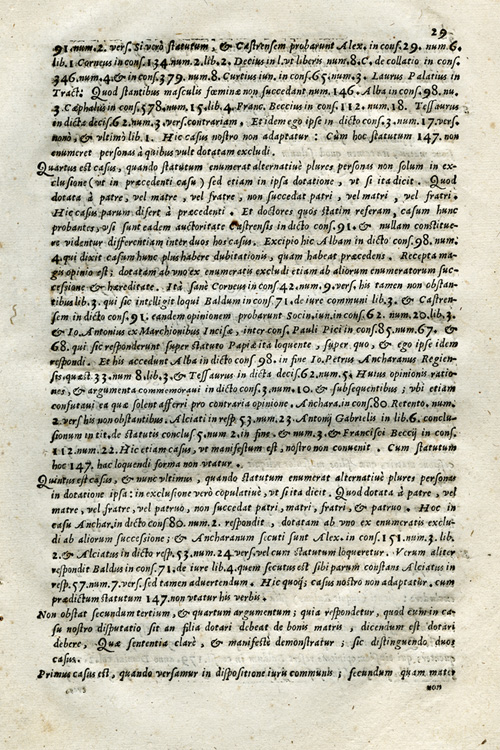 29
91. num. 2. vers. Si verò statutum, & Castrensem probarunt Alex. in cons. 29. num. 6.
lib. 1 Corneus in cons. 134. num. 2. lib. 2. Decius in l. vt liberis num. 8. C. de collatio in cons.
346. num. 4. & in cons. 379. num. 8. Curtius iun. in cons. 65. num. 3. Laurus Palatius in
Tract: Quod stantibus masculis fœminæ non succedant num. 146. Alba in cons. 98. nu.
3. Caphalus in cons. 578. num. 15. lib. 4. Franc. Beccius in cons. 112. num. 18. Tessaurus
in dicta decis. 62. num. 3. vers. contrariam, Et idem ego ipse in dicto cons. 3. num. 17. vers.
nonò, & vltimò lib. 1. Hic casus nostro non adaptatur: Cùm hoc statutum 147. non
enumeret personas à quibus vult dotatam excludi.
Quartus est casus, quando statutum enumerat alternatiuè plures personas non solum in ex-
clusione (vt in præcedenti casu) sed etiam in ipsa dotatione, vt si ita dicit. Quod
dotata à patre, vel matre, vel fratre, non succedat patri, vel matri, vel fratri.
Hic casus parum disert à præcedenti. Et doctores quos statim referam, casum hunc
probantes, vsi sunt eadem auctoritate Castrensis in dicto cons. 91. & nullam constitue-
re videntur differentiam inter duos hos casus. Excipio hic Albam in dicto cons. 98. num.
4. qui dixit casum hunc plus habere dubitationis, quam habeat præcedens. Recepta ma-
gis opinio est; dotatam ab vno ex enumeratis excludi etiam ab aliorum enumeratorum suc-
cessione & hæreditate. Ita sanè Corneus in cons. 42. num. 9. vers. his tamen non obstan-
tibus lib. 3. qui sic intelligit loqui Baldum in cons. 71. de iure communi lib. 3. & Castren-
sem in dicto cons. 91. eandem opinionem probarunt Socin. iun. in cons. 62. num. 20. lib. 3.
& Io. Antonius ex Marchionibus Incisæ, inter cons. Pauli Pici in cons. 85. num. 67. &
68. qui sic responderunt super statuto Papiæ ita loquente, super quo, & ego ipse idem
respondi. Et his accedunt Alba in dicto cons. 98. in fine Io. Petrus Ancharanus Regien-
sis. quæst. 33. num 8. lib. 3. & Tessaurus in dicta decis. 62. num. 5. Huius opinionis ratio-
nes, & argumenta commemoraui in dicto cons. 3. num. 10. & subsequentibus; vbi etiam
confutaui ea quæ solent afferri pro contraria opinione. Anchara. in cons. 80. Retento. num.
2. vers his non obstantibus. Alciati in resp. 53. num. 23. Antonij Gabrielis in lib. 6. conclu-
sionum in tit. de statutis conclus 5. num. 2. in fine. & num. 3. & Francisci Beccij in cons.
112. num. 22. Hic etiam casus, vt manifestum est, nostro non conuenit. Cum statutum
hoc 147. hac loquendi forma non vtatur.
Quintus est casus, & nunc vltimus, quando statutum enumerat alternatiuè plures personas
in dotatione ipsa: in exclusione verò copulatiuè, vt si ita dicit. Quod dotata à patre, vel
matre, vel fratre, vel patruo, non succedat patri, matri, fratri, & patruo. Hoc in
casu Anchar. in dicto cons 80. num. 2. respondit, dotatam ab vno ex enumeratis exclu-
di ab aliorum successione; & Ancharanum secuti sunt Alex. in cons. 151. num. 3. lib.
2. & Alciatus in dicto resp. 53. num. 24. vers. vel cum statutum loqueretur. Verum aliter
respondit Baldus in cons. 71. de iure lib. 4. quem secutus est sibi parum constans Alciatus in
resp. 57. num. 7. vers. sed tamen aduertendum. Hic quoq; casus nostro non adaptatur. cum
prædictum statutum 147. non vtatur his verbis.
Non obstat secundum tertium, & quartum argumentum; quia respondetur, quod cum in ca-
su nostro disputatio sit an filia dotari debeat de bonis matris, dicendum est dotari
debere, Quæ sententia clarè, & manifestè demonstratur; sic distinguendo duos
casus.
Primus casus est, quando versamur in dispositione iuris communis; secundum quam mater
non